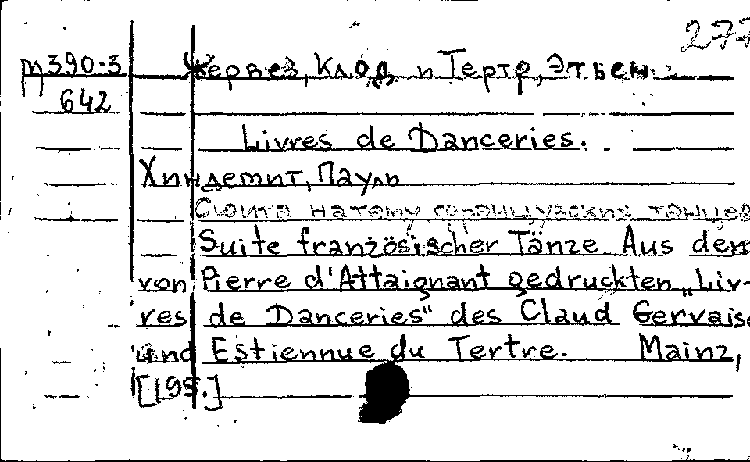 277
М390-3 Жервез, Клод и Тертр, Этьен.
642
Livres de Danceries.
Хиндемит, Пауль
Сюита на тему французских танцев
Suite französischer Tänze. Aus dem
von Pierre d'Attaignant gedruckten „Liv-
res de Danceries" des Claud Gervaise
und Estiennue du Tertre. Mainz,
[195.]